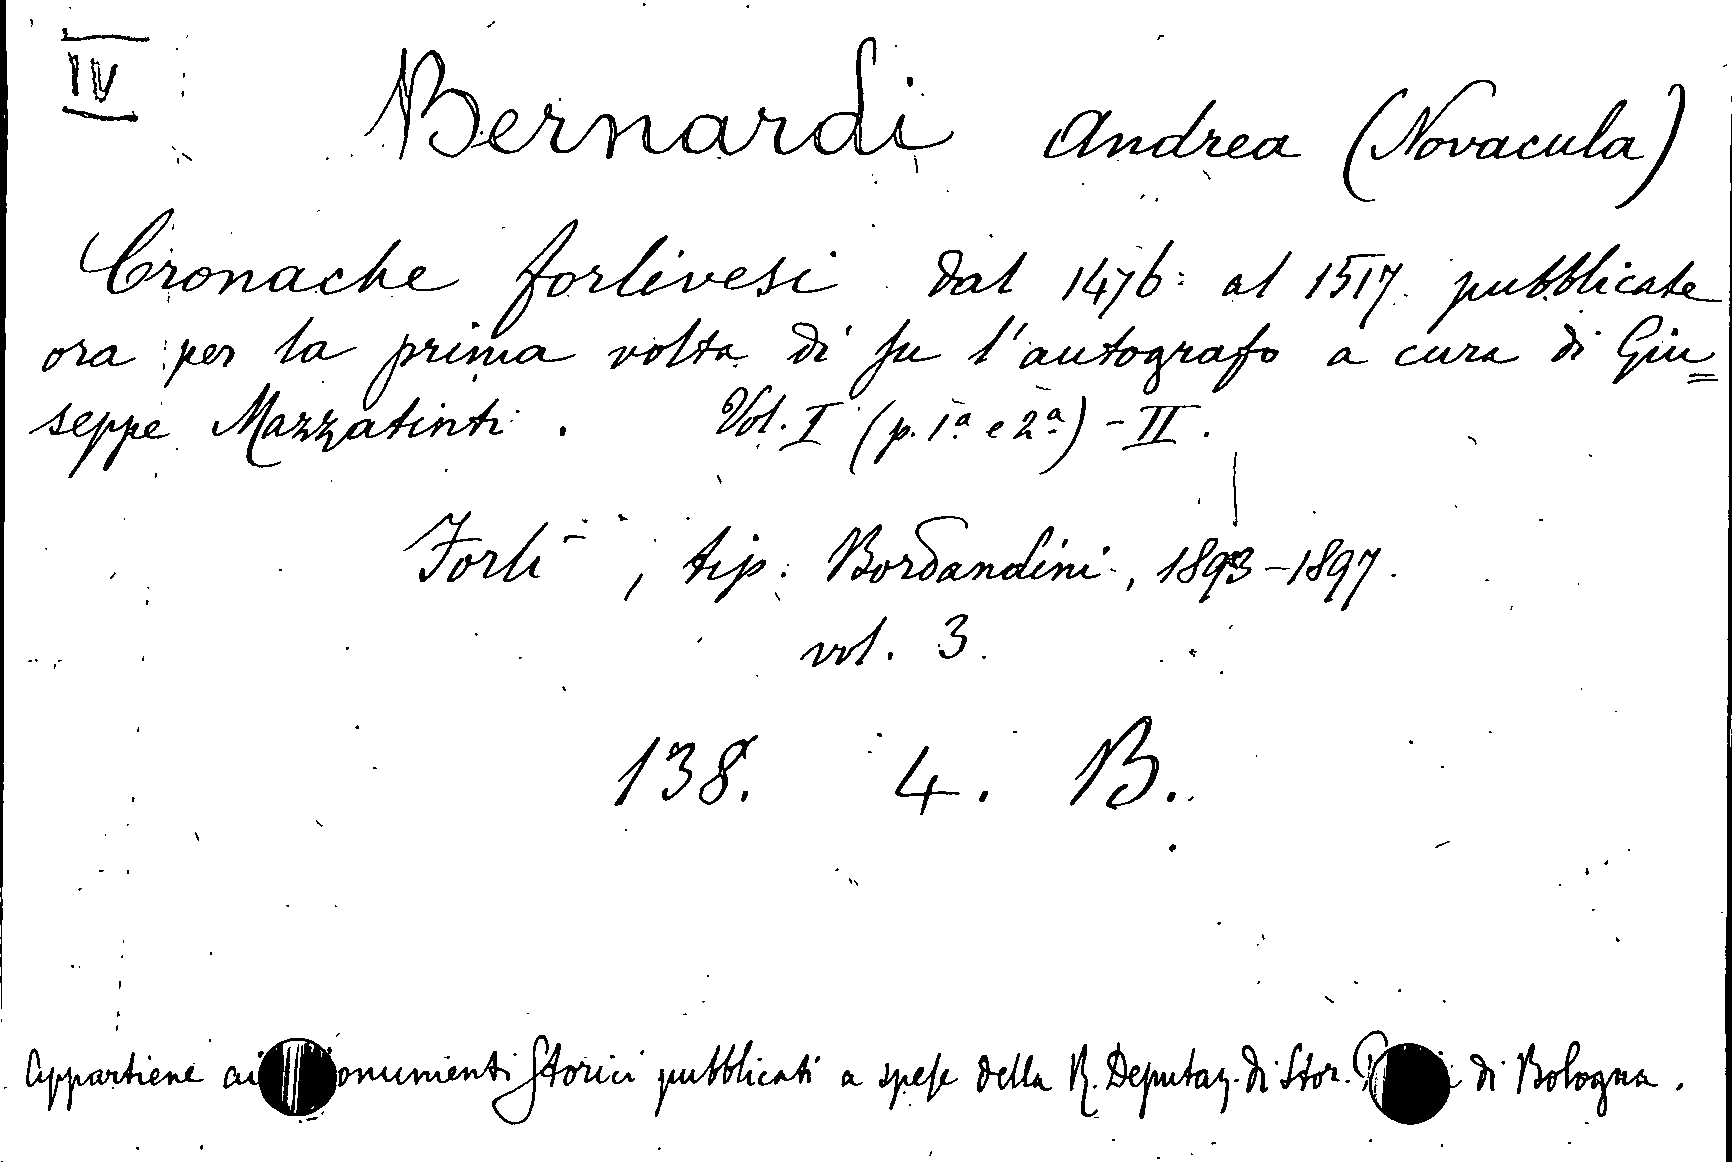 IV
Bernardi Andrea (Novacula)
Cronache forlivesi dal 1476 al 1517 pubblicate
ora per la prima volta di su l'autografo a cura di Giu=
seppe Mazzatinti. Vol. I (p. 1ª e 2ª) - II.
Forlì, tip. Bordandini, 1893-1897.
vol. 3.
138. 4. B.
Appartiene ai onumenti Storici pubblicati a spese della R. Deputaz. di Stor. di Bologna.